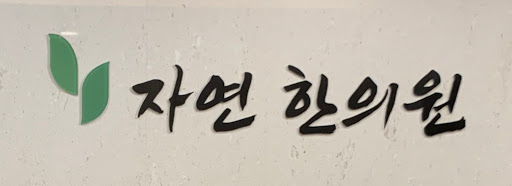 자연 한의원